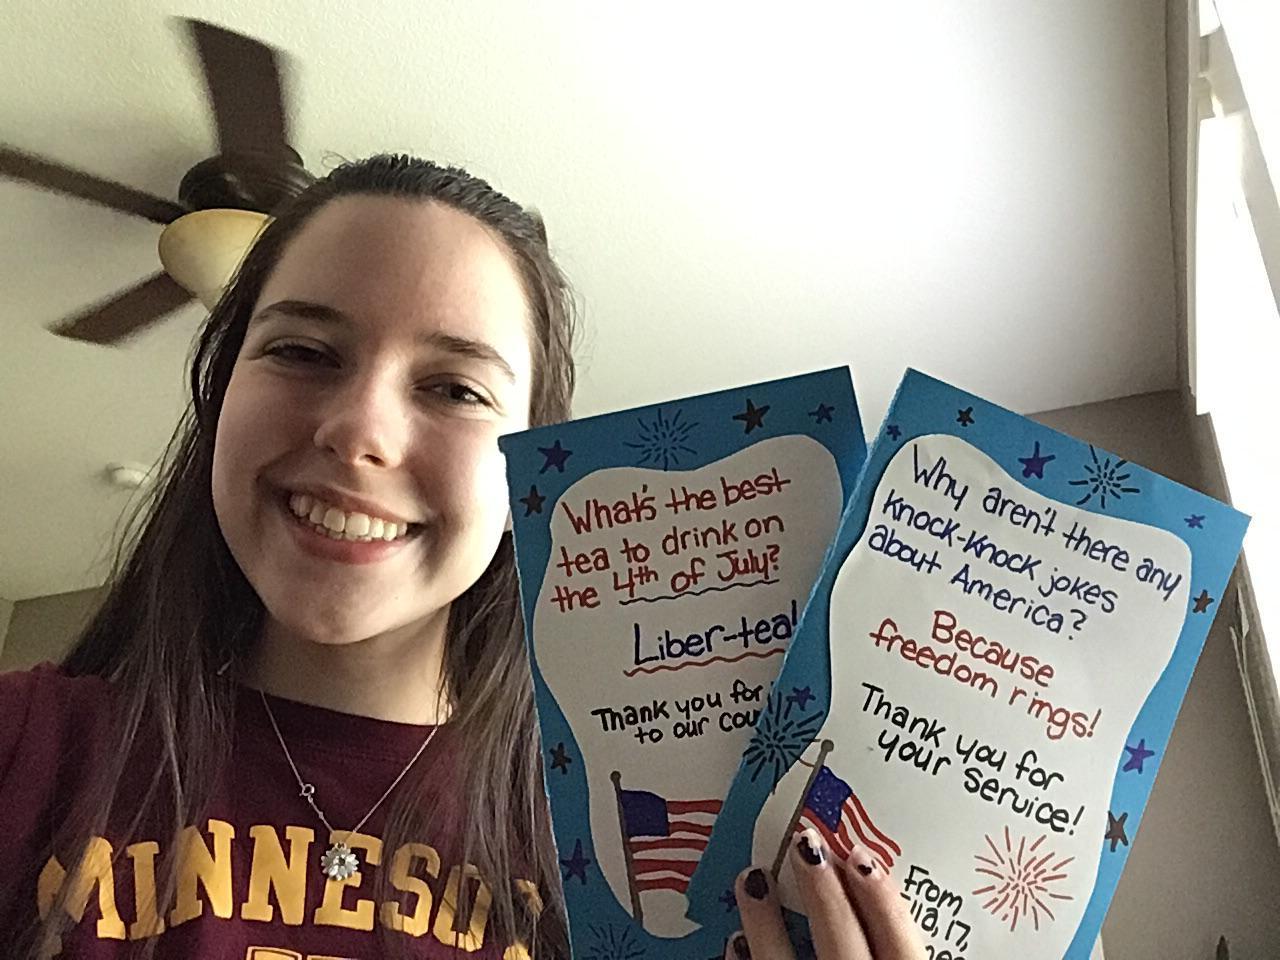 What's the best
tea to drink on
the 4th of July?
Liber-tea!
Thank you for
to our
Why aren't there any
knock-knock jokes
about America?
Because
freedom rings!
Thank you for
your service!
From
17,
MINNESO